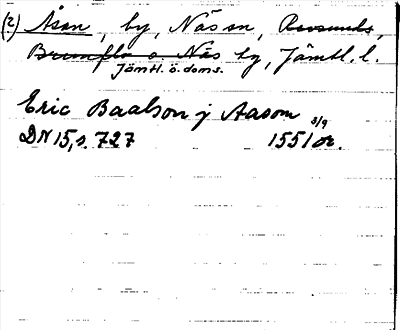 (2) Åsan, by, Näs sn, Revsunds,
Brunflo o. Näs tg, Jämtl. l.
Jämtl. ö. doms.
Eric Baalson j Aasom 3/9
DN 15, s. 727 1551 or.